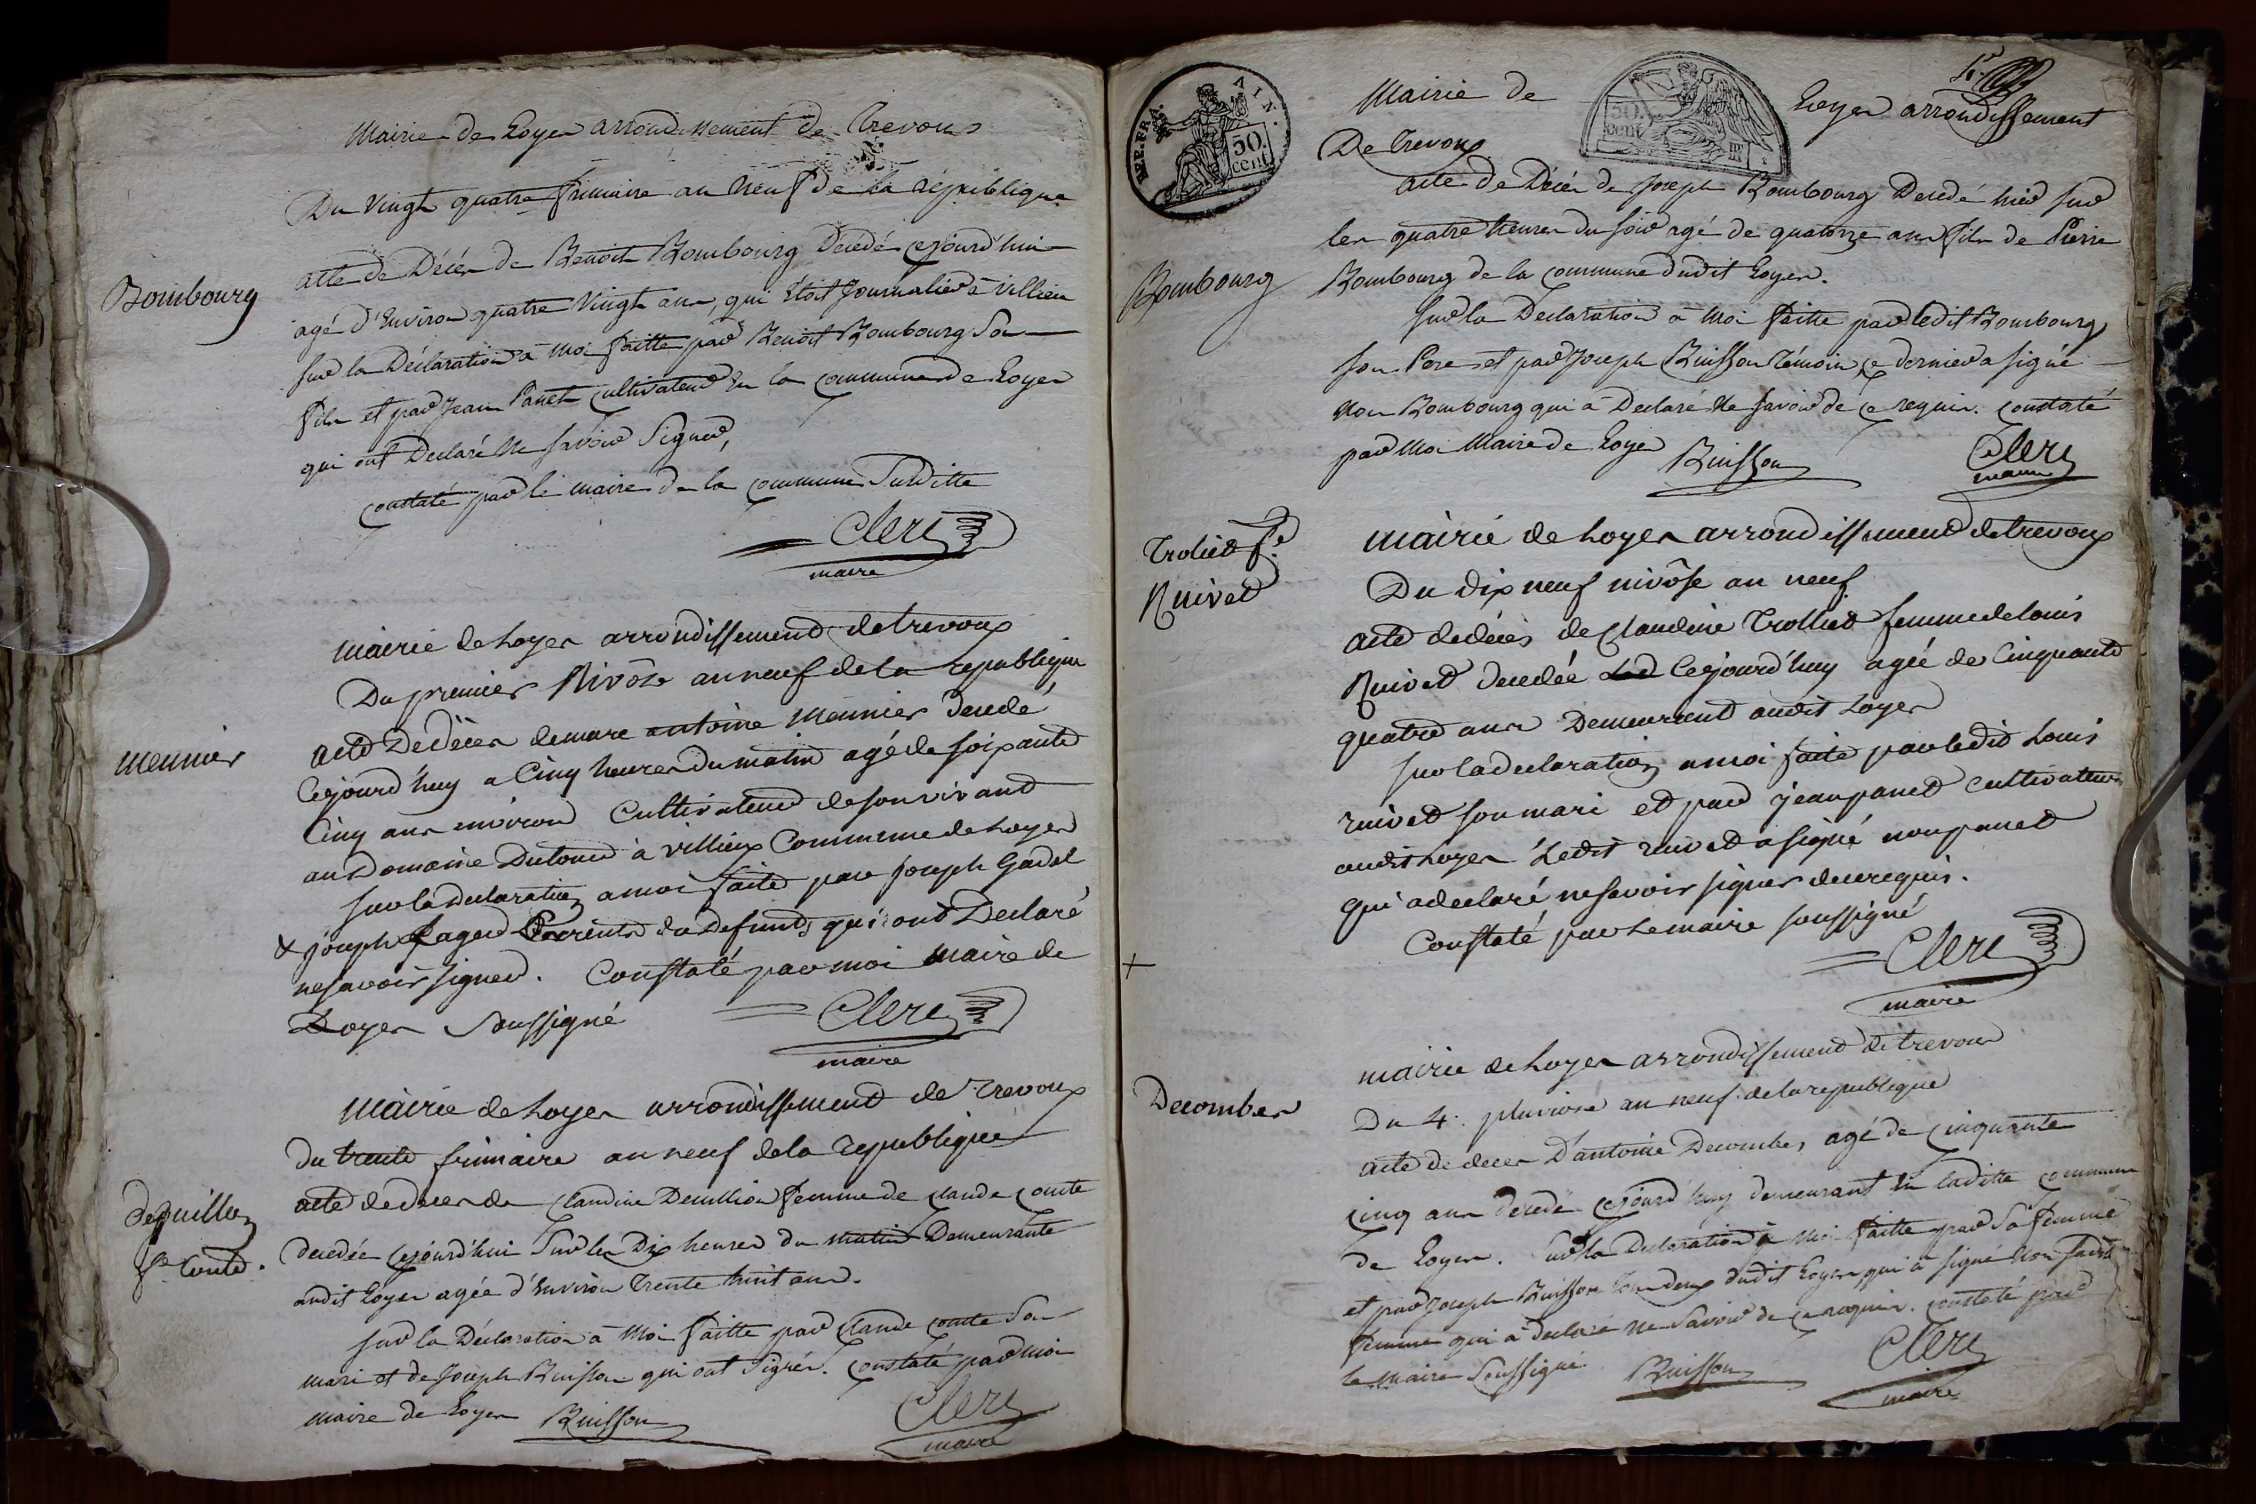 Mairie de Loyes arrondissement de Trevoux
Du vingt quatre frimaire an neuf de la république
Bombourg
acte de Décés de Benoit Bombourg Décedé cejourd'hui
agé d'Environ quatre vingt ans, qui étoit Journalier à villieu
sur la Déclaration à moi faitte par Benoit Bombourg Son
fils et par Jean Panet cultivateur en la commune de Loyes
qui ont Declaré ne savoir Signer,
constaté par le maire de la commune Susditte
Clerc
maire
mairie de Loyes arrondissement de trevoux
Du premier Nivôse an neuf de la republique
meunier
acte de décès de marc antoine meunier decedé
Cejourd'huy a Cinq heures du matin agé de soixante
Cinq ans environ Cultivateur de son vivant
au Domaine Dutour à villieux Commune de Loyes
sur la declaration a moi faite par joseph Gadel
& joseph Parents du defunt qui ont Declaré
ne savoir signer. Constaté par moi maire de
Loyes Soussigné
Clerc
maire
mairie de Loyes arrondissement de Trevoux
du trente frimaire an neuf de la republique
fe Conte.
acte de deces de Claudine Femme de Claude Conte
decedée cejourd'hui Sur les Dix heures du matin Demeurante
audit Loyes agée d'Environ Trente huit ans.
sur la Déclaration à Moi faitte par Claude Conte Son
mari et de Joseph Buisson qui ont Signés. Constaté par moi
maire de Loyes Buisson Clerc
maire
REP. FRA.
50.
cent
50.
cent
Mairie de Loyes arrondissement
De Trevoux
acte de Décés de Joseph Bombourg Decedé hier sur
les quatre heures du soir agé de quatorze ans fils de Pierre
Bombourg
Bombourg de la commune dudit Loyes.
sur la Declaration à Moi faitte par ledit Bombourg
son Pere et par Joseph Buisson Témoin, ce dernier a signé
non Bombourg qui à Declaré ne savoir de ce requis. constaté
par Moi Maire de Loyes Buisson Clerc
maire
Troliet fe
Ruivet
mairie de Loyes arrondissement de trevoux
Du dix neuf nivôse an neuf
acte de décès de Claudine Trolliet femme de Louis
Ruivet decedée cejourd'huy agée de Cinquante
quatre ans Demeurant audit Loyes
sur la declaration a moi faite par ledit Louis
ruivet son mari et par jean panet cultivateur
audit Loyes Ledit ruivet a signé non panet
qui a declaré ne savoir signer de ce requis.
Constaté par Le maire soussigné
Clerc
maire
mairie de Loyes arrondissement de trevoux
Decombes
Du 4. pluviose an neuf de la republique
acte de deces D'antoine Decombes, agé de cinquante
cinq ans decedé cejourd'huy demeurant en laditte commune
de Loyes. sur la Declaration à Moi faitte par Sa Femme
et par Joseph Buisson tous deux dudit Loyes qui à signé non sadite
femme qui à declaré ne Savoir de ce requis. constaté par
le maire Soussigné Buisson Clerc
maire